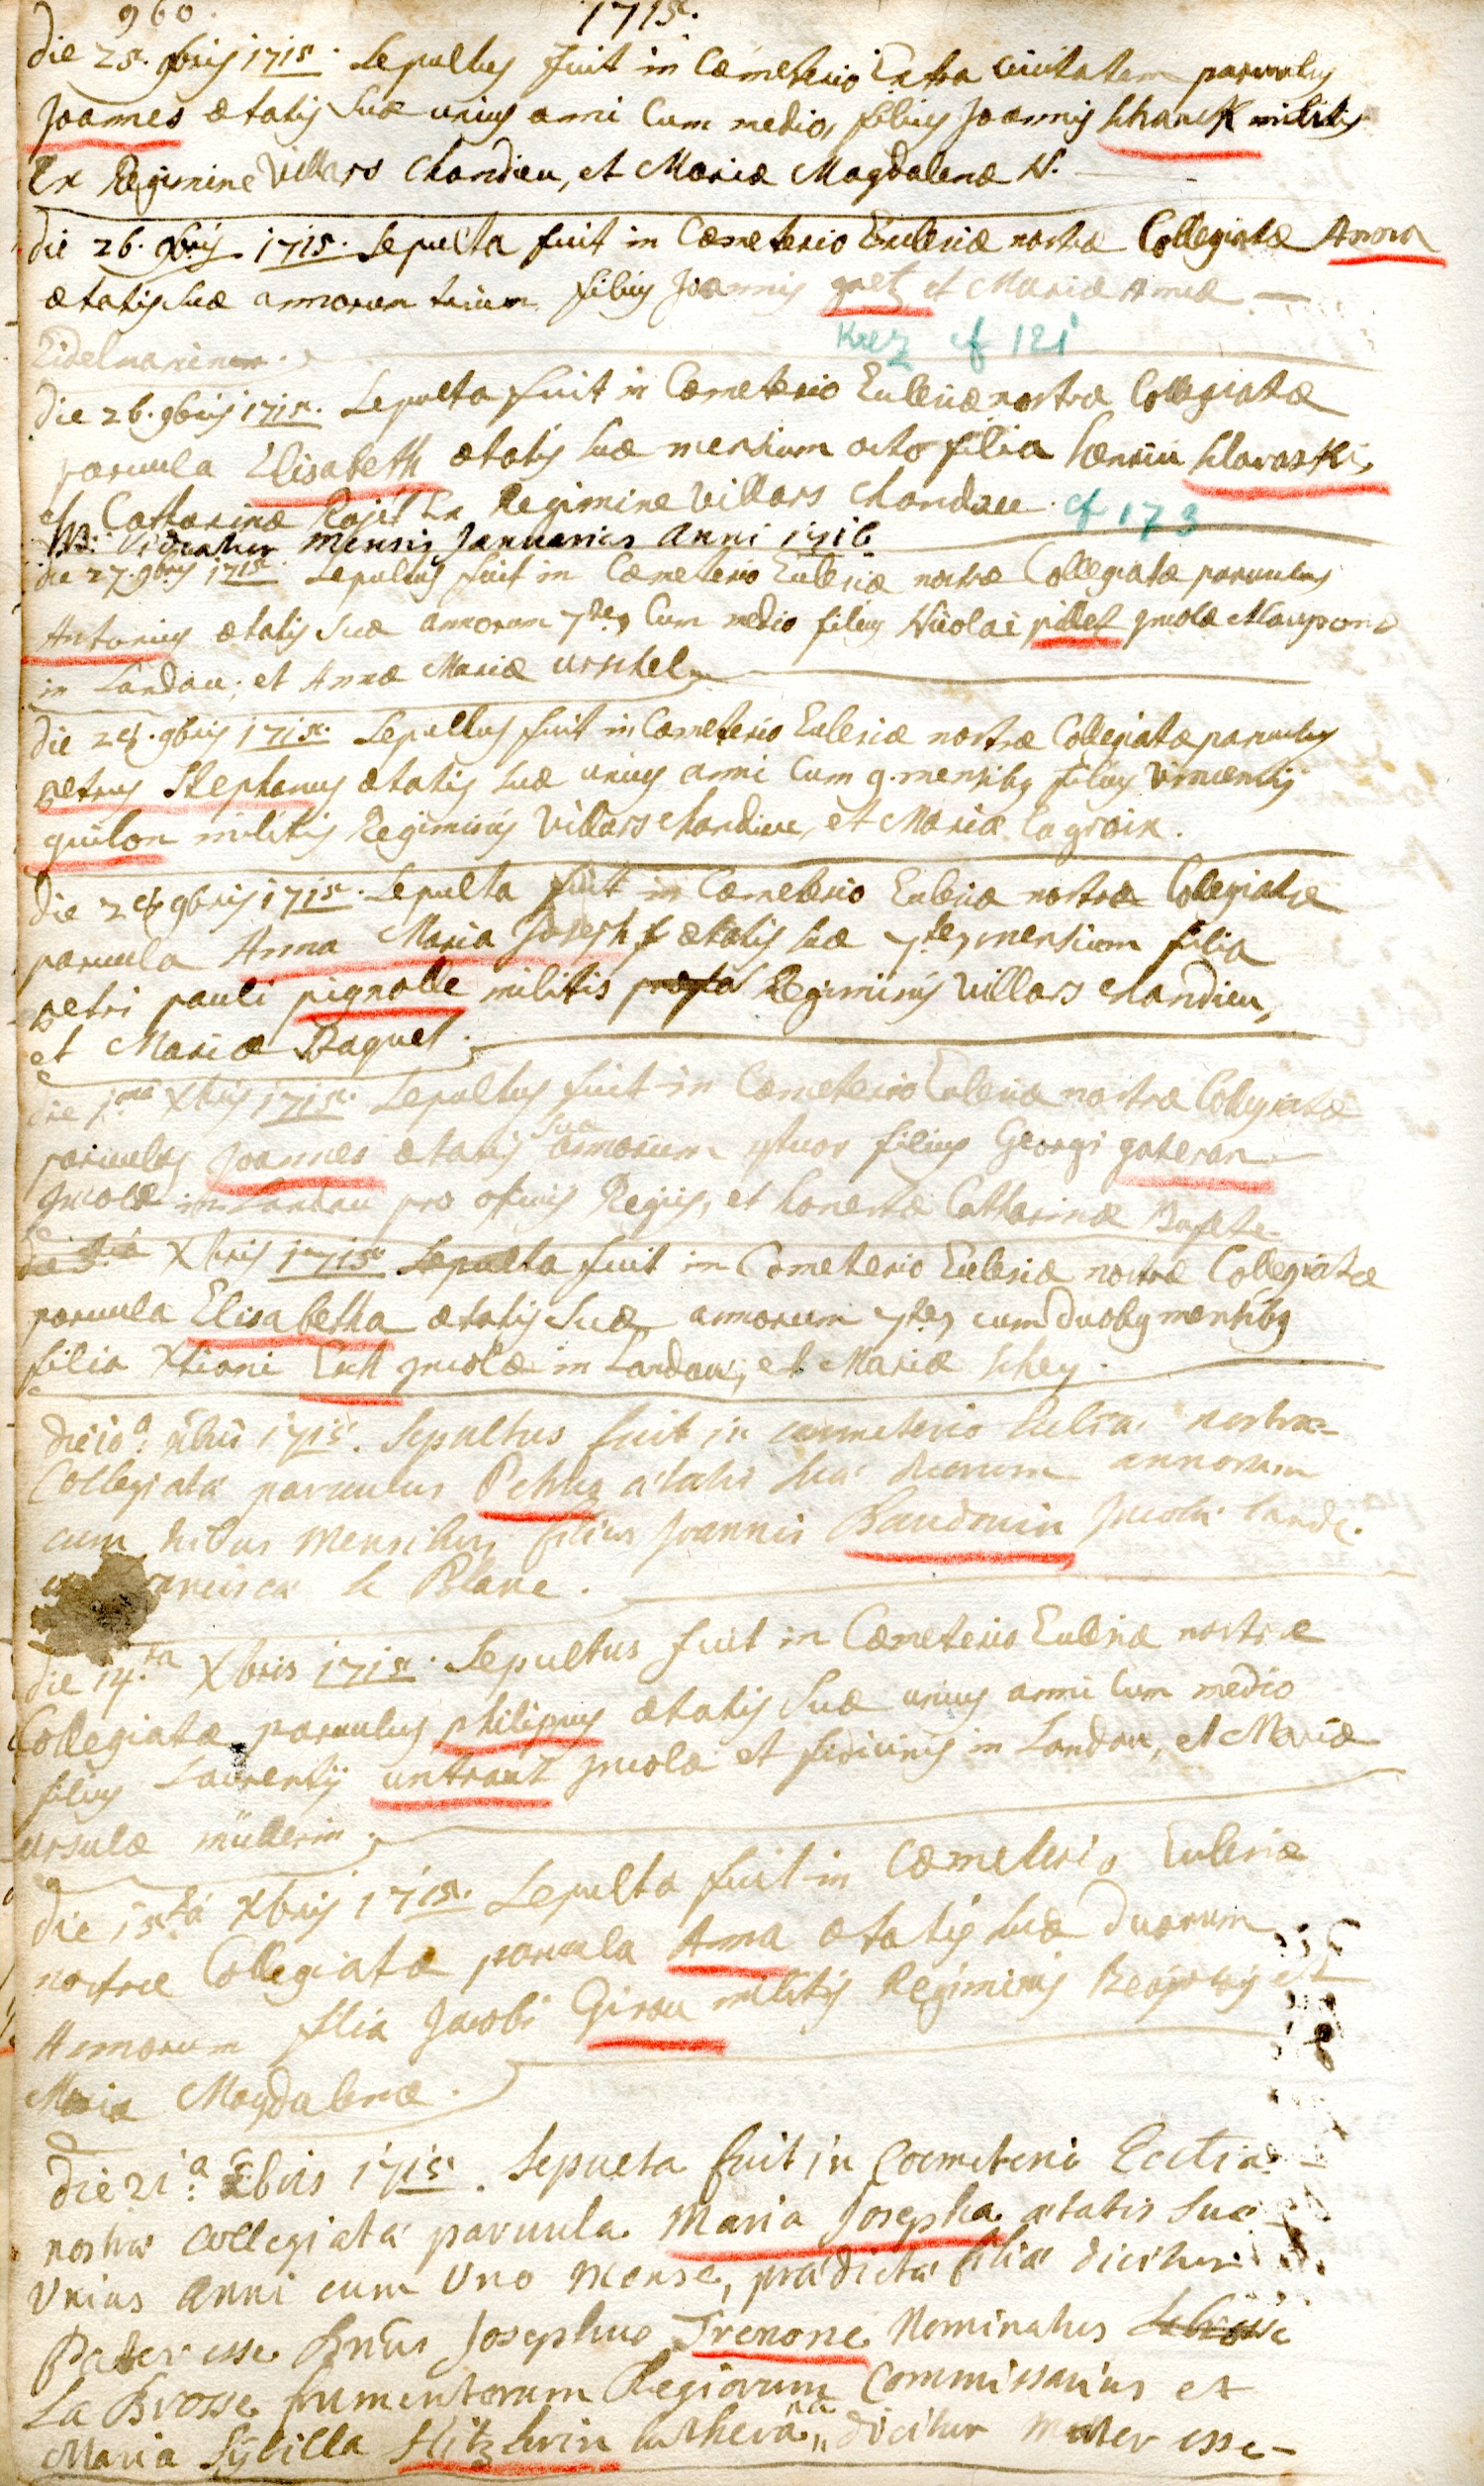 960. 1715.
die 25. 9bris 1715. Sepultus fuit in Cœmeterio Extra civitatem parvulus
Joannes ætatis suæ unius anni Cum medio, filius Joannis Schanck militis
Ex Regimine Villars Chandieu, et Mariæ Magdalenæ N.
die 26. 9bris 1715. Sepulta fuit in Cœmeterio Ecclesiæ nostræ Collegiatæ Anna
ætatis suæ annorum trium filius Joannis gretz et Mariæ Annæ
Krez cf 121
die 26. 9bris 1715. Sepulta fuit in Cœmeterio Ecclesiæ nostræ Collegiatæ
parvula Elisabeth ætatis suæ mensium octo filia
et Catharinæ Ex Regimine Villars Chandieu. cf 173
NB. Videatur Mensis Januarius Anni 1716
die 27. 9bris 1715. Sepultus fuit in Cœmeterio Ecclesiæ nostræ Collegiatæ parvulus
Antonius ætatis suæ annorum Cum medio filius Nicolai pillet
in Landau; et Annæ Mariæ urschel
die 28. 9bris 1715. Sepultus fuit in Cœmeterio Ecclesiæ nostræ Collegiatæ parvulus
petrus Stephanus ætatis suæ unius anni Cum 9. mensibus filius Vincentii
guilon militis Regiminis Villars Chandieu, et Mariæ lagroix.
die 28 9bris 1715. Sepulta fuit in Cœmeterio Ecclesiæ nostræ Collegiatæ
parvula Anna Maria Joseph ætatis suæ mensium filia
petri pauli pignolle militis Regiminis Villars Chandieu,
et Mariæ Raquet.
die 1ma Xbris 1715. Sepultus fuit in Cœmeterio Ecclesiæ nostræ Collegiatæ
parvulus Joannes ætatis suæ annorum filius Georgi gateran
in Landau pro Regiis, et honestæ Catharinæ
Xbris 1715 Sepulta fuit in Cœmeterio Ecclesiæ nostræ Collegiatæ
parvula Elisabetha ætatis suæ annorum cum duobus mensibus
filia Xtiani incolæ in Landau, et Mariæ
die 10a: Xbris 1715. Sepultus fuit in cœmeterio nostræ
Collegiatæ parvulus Petrus ætatis suæ annorum
cum mensibus filius Joannis Baudouin
le Blanc.
die 14ta Xbris 1715. Sepultus fuit in Cœmeterio Ecclesiæ nostræ
Collegiatæ parvulus philippus ætatis suæ unius anni Cum medio
filius Laurentii untraut incolæ et fidicinis in Landau, et Mariæ
ursulæ müllerin.
die 15ta Xbris 1715. Sepulta fuit in Cœmeterio Ecclesiæ
nostræ Collegiatæ parvula Anna ætatis suæ duorum
Annorum filia Jacobi Girou militis Regiminis et
Maria Magdalenæ.
die 21a: Xbris 1715. Sepulta fuit in Coemeterio
nostræ Collegiatæ parvula Maria Josepha ætatis suæ
Unius Anni cum Uno Mense, prædictæ filiæ dicitur
Pater esse Josephus Trenone Nominatus
La Brosse frumentorum Regiorum Commissarius et
Maria Sybilla dicitur Mater esse